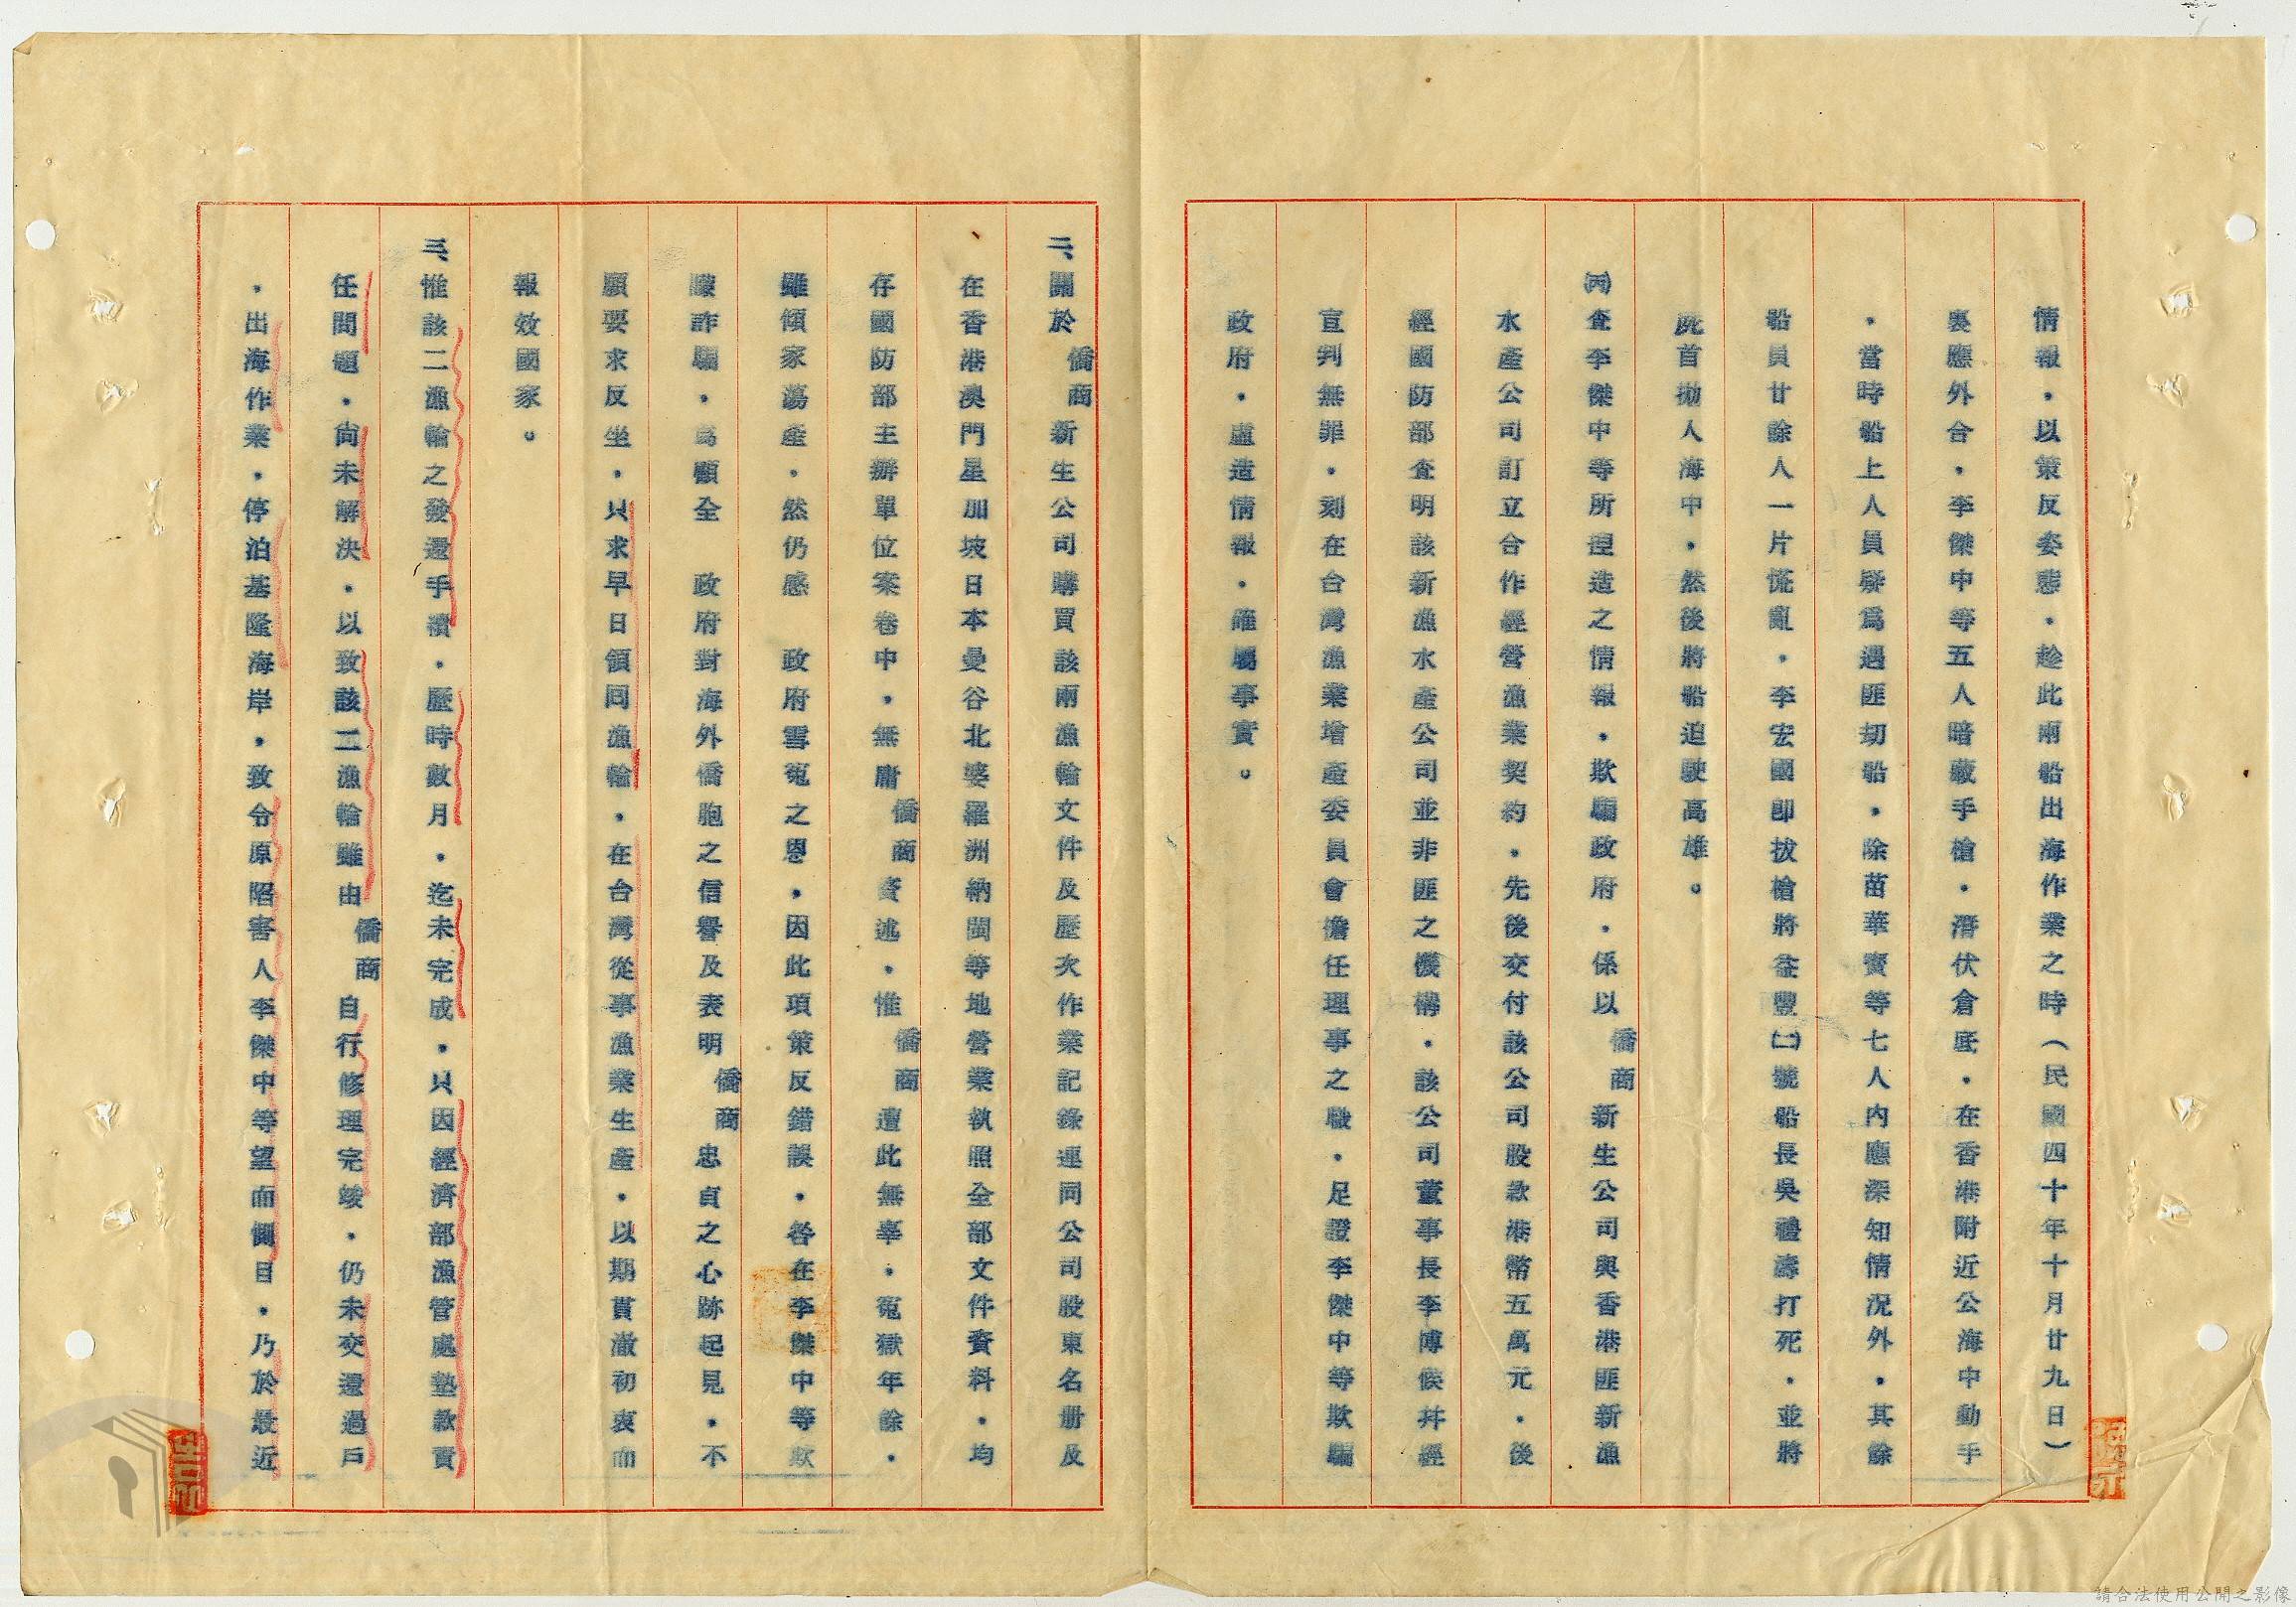 情報，以策反姿態，趁此兩船出海作業之時（民國四十年十月廿九日）
裏應外合，李傑中等五人暗藏手槍，潛伏倉底，在香港附近公海中動手
，當時船上人員疑為遇匪刼船，除苗華實等七人內應深知情況外，其餘
船員廿餘人一片慌亂，李宏國卽拔槍將益豐㈡號船長吳禮濤打死，並將
死首拋人海中，然後將船迫駛高雄。
㈣查李傑中等所捏造之情報，欺騙政府，係以僑商新生公司與香港匪新漁
水產公司訂立合作經營漁業契約，先後交付該公司股款港幣五萬元，後
經國防部查明該新漁水產公司並非匪之機構，該公司董事長李博侯幷經
宣判無罪，刻在台灣漁業增產委員會擔任理事之職，足證李傑中等欺騙
政府，虛造情報，確屬事實。
二、關於僑商新生公司購買該兩漁輪文件及歷次作業記錄連同公司股東名册及
在香港澳門星加坡日本曼谷北婆羅洲納閩等地營業執照全部文件資料，均
存國防部主辦單位案卷中，無庸僑商贅述，惟僑商遭此無辜，寃獄年餘，
雖傾家蕩產，然仍感　政府雪寃之恩，因此項策反錯誤，咎在李傑中等欺
矇詐騙，為顧全　政府對海外僑胞之信譽及表明僑商忠貞之心跡起見，不
願要求反坐，只求早日領回漁輪，在台灣從事漁業生產，以期貫澈初衷而
報效國家。
三、惟該二漁輪之發還手續，歷時數月，迄未完成，只因經濟部漁管處墊款責
任問題，尚未解決，以致該二漁輪雖由僑商自行修理完竣，仍未交還過戶
，出海作業，停泊基隆海岸，致令原陷害人李傑中等望而側目，乃於最近
請合法使用公開之影像